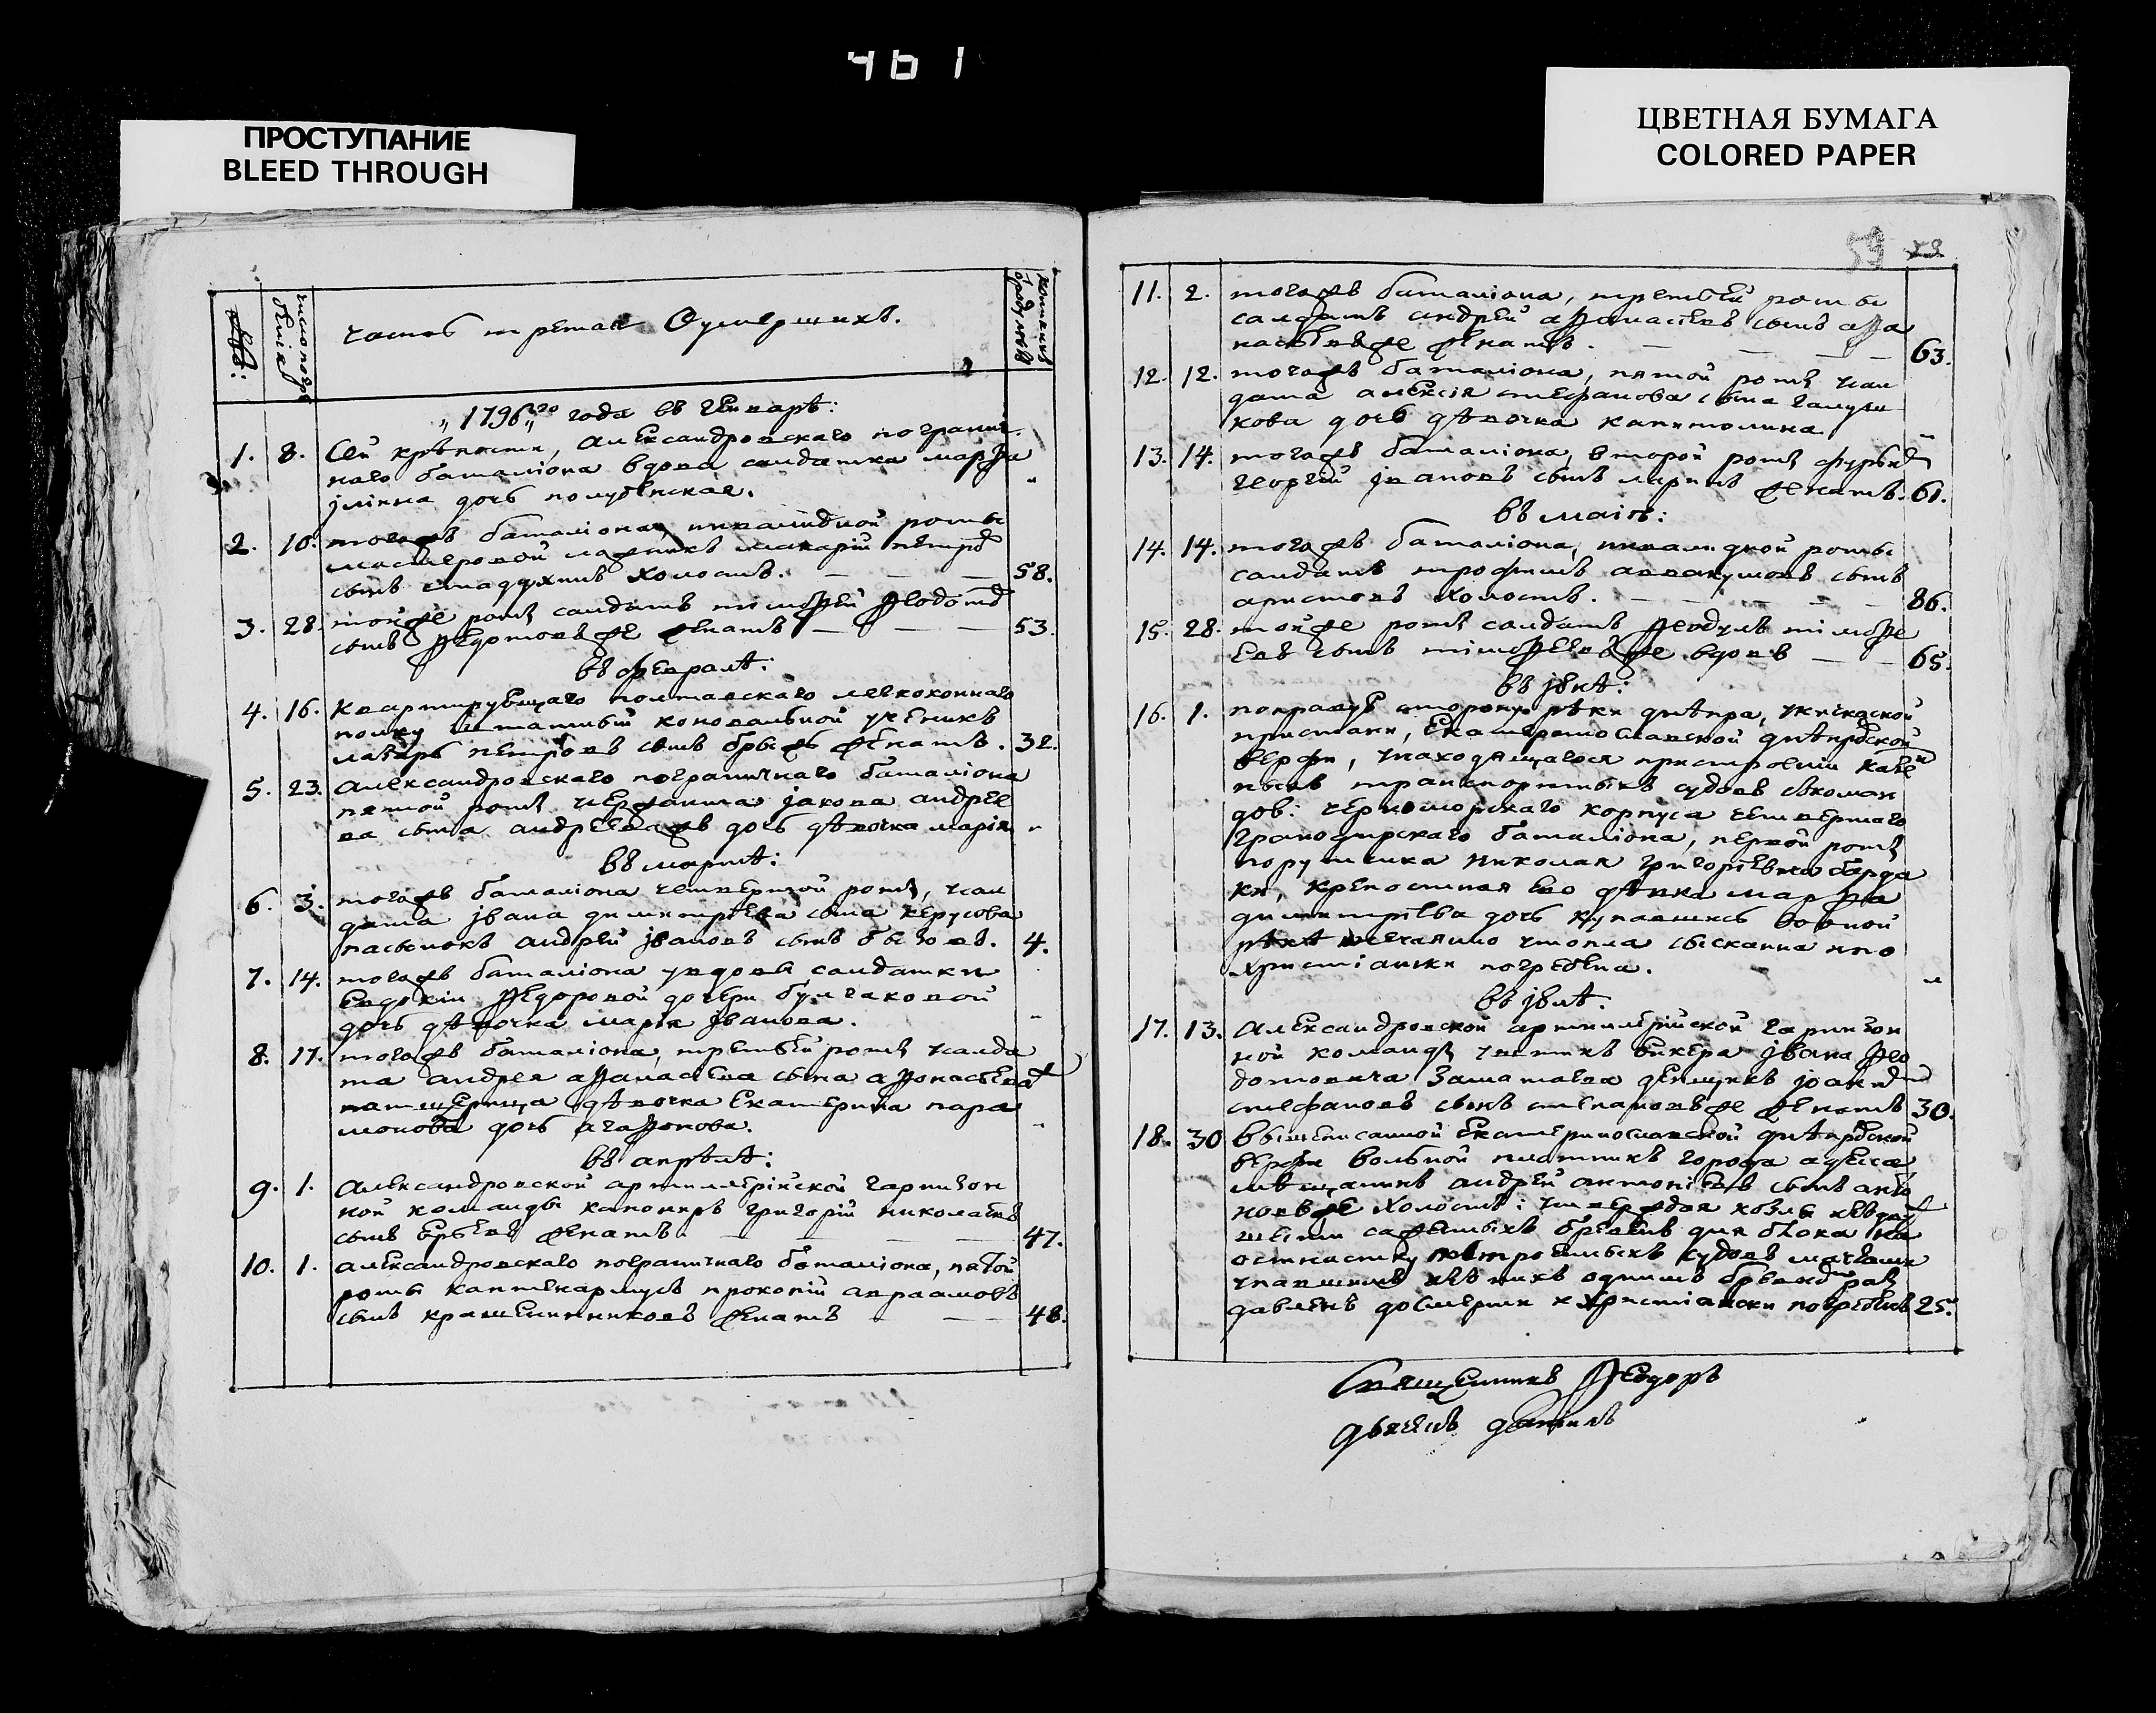 461
ПРОСТУПАНИЕ
BLEED THROUGH
ЦВЕТНАЯ БУМАГА
COLORED PAPER
часть третая О умершихъ.
„1796„го года въ генварѣ:
1. 8. Сей крѣпости, александровскаго погранич
наго баталіона вдова салдатка марѳа
јлѣина дочь полубенская. „
2. 10. тогожъ баталіона, инвалидной роты
мастеровой макарій петровъ
сынъ холостъ. — — — 58.
3. 28. тойже роты салдатъ тимоѳей Ѳедотовъ
сынъ Ѳедотовъ же женатъ — — — 53.
въ февралѣ:
4. 16. Квартирующаго полтавскаго легкоконнаго
полку коновальной ученикъ
лазарь петровъ сынъ женатъ. 32.
5. 23. александровскаго пограничнаго баталіона
пятой роты сержанта јакова андрее
ва сына андреева жъ дочь дѣвочка марія „
въ мартѣ:
6. 3. тогожъ баталіона четвертой роты, сал
дата јвана димитріева сына
пасынокъ андрей јвановъ сынъ 4.
7. 14. тогожъ баталіона у вдовы салдатки
Евдокіи Ѳедоровой дочери булгаковой
дочь дѣвочка марія јванова. „
8. 17. тогожъ баталіона, третьей роты салда
та андрея аѳанасіева сына аѳонасьева
патщерица дѣвочка Екатерина пара
монова дочь агаѳонова. „
въ апрѣлѣ:
9. 1. александровской артиллерійской гарнизон
ной команды канониръ григорій николаевъ
сынъ женатъ. — — — 47.
10. 1. александровскаго пограничнаго баталіона, пятой
роты каптенармусъ прокопій авраамовъ
сынъ крашенинниковъ женатъ — — 48.
59
11. 2. тогожъ баталіона, третьей роты
салдатъ андрей аѳонасіевъ сынъ аѳа
насьевъ же женатъ. — — — — 63.
12. 12. тогожъ баталіона, пятой роты сал
дата алексія стефанова сына галуш
кова дочь дѣвочка капитолина „
13. 14. тогожъ баталіона, второй роты
георгій јвановъ сынъ ларинъ женатъ. 61.
въ маіѣ:
14. 14. тогожъ баталіона, инвалидной роты
салдатъ трофимъ аввакумовъ сынъ
аристовъ холостъ. — — — — 86.
15. 28. тойже роты салдатъ Ѳеодулъ тимоѳе
евъ сынъ тимоѳеевъ же вдовъ — — 65.
въ јюнѣ:
16. 1. поправую сторону рѣки днѣпра, у кичкаской
пристани, Екатеринославской днѣпровской
верфи, находящагося пристроеніи казен
ныхъ транспортныхъ судовъ скоман
дов: черноморскаго корпуса четвертаго
гранодирскаго баталіона, первой роты
порутчика николая григоріевича барда
ки, крепостная его дѣвка марѳа
димитріева дочь купавшись воной
рѣкѣ нечаянно утопла сыскана и по
христіански погребена. „
въ јюлѣ.
17. 13. александровской артиллерійской гарнизон
ной команды јвана Ѳео
дотовича денщикъ
стефановъ сынъ степановъ же женатъ 30.
18. 30 вышеписанной Екатеринославской днѣпровской
верфи вольной плотникъ города адеса
мѣщанинъ андрей антоніевъ сынъ анто
новъ же холостъ: утвердя козлы
бревенъ для
судовъ
однимъ бревномъ раз
давленъ досмерти и христіански погребенъ 25.
Священникъ Ѳеодоръ
дьячекъ